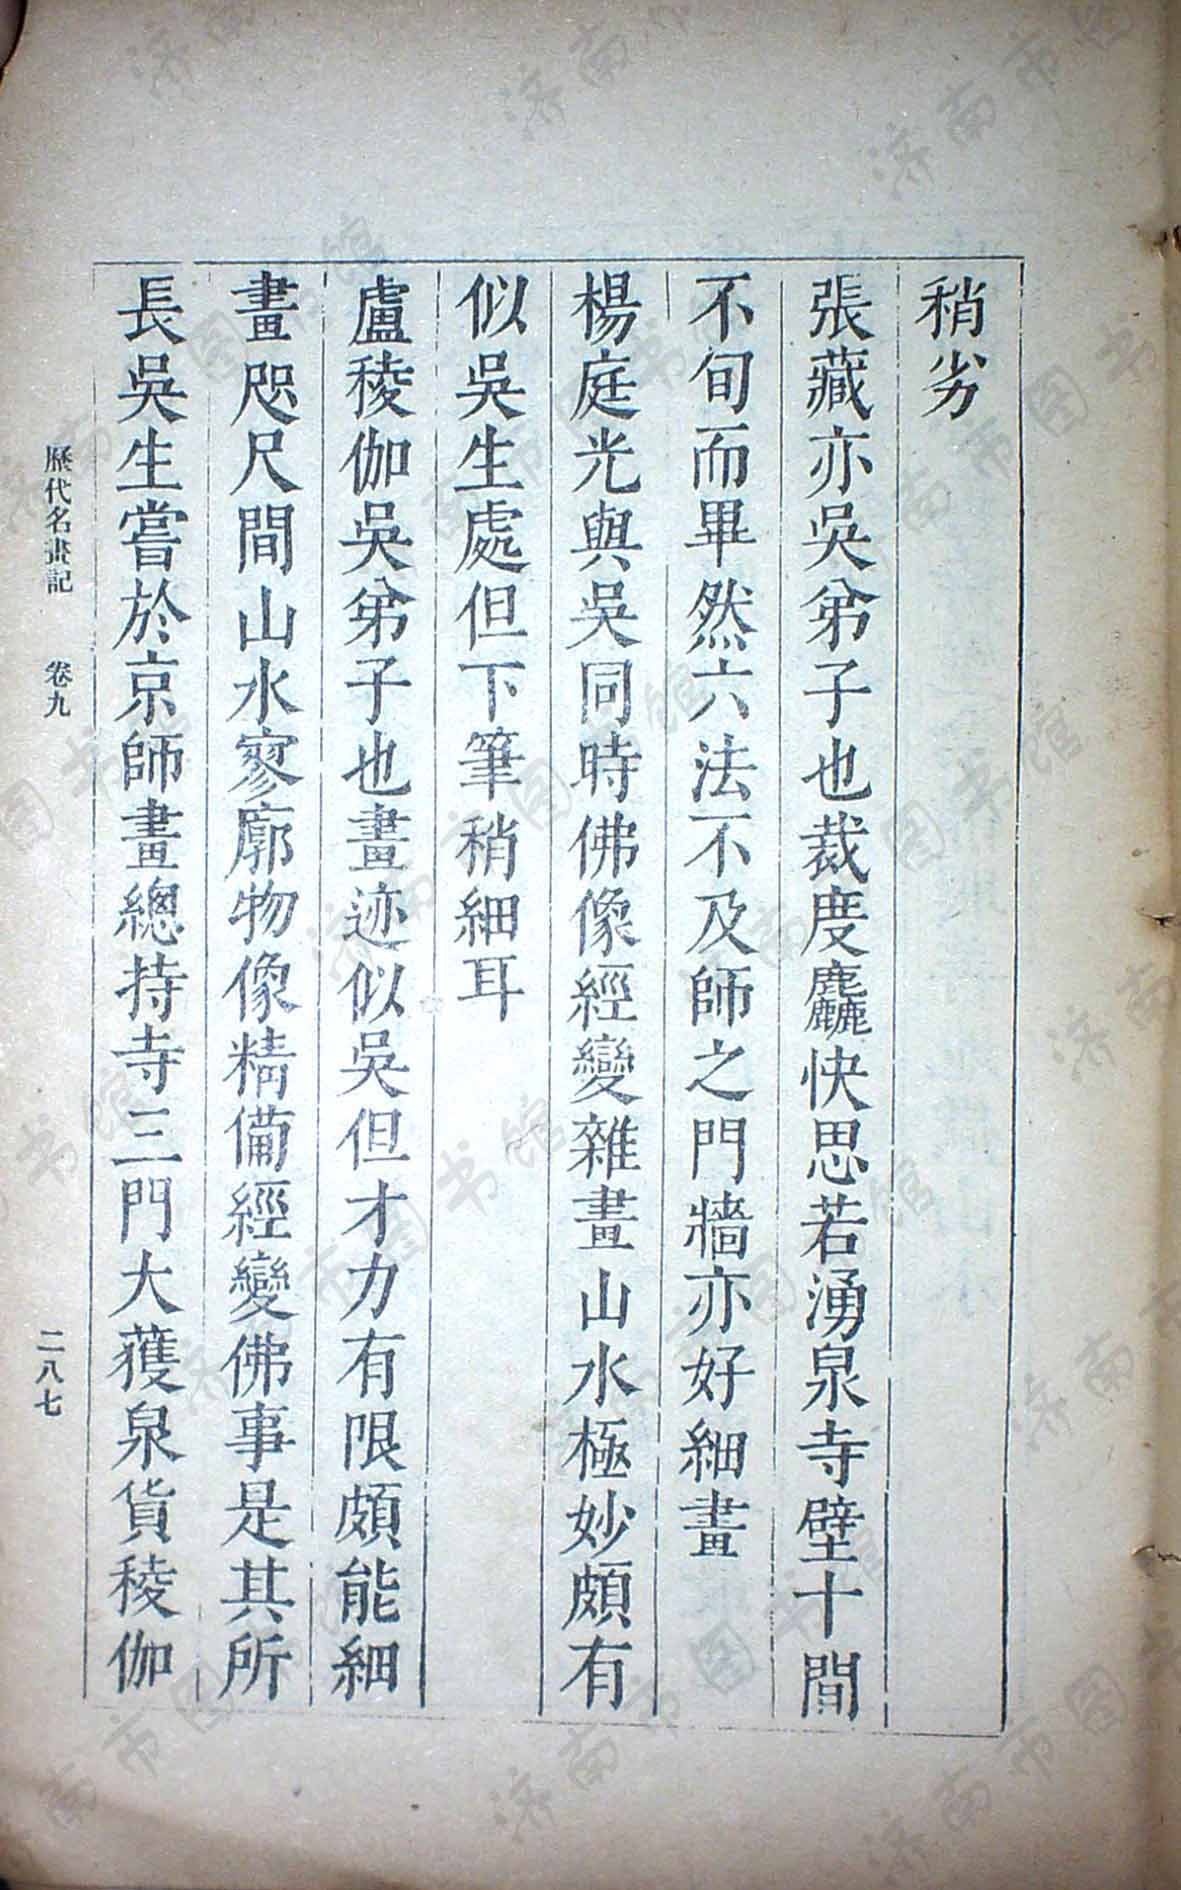 稍劣
張藏亦吳弟子也裁度麤快思若湧泉寺壁十間
不旬而畢然六法不及師之門牆亦好細畫
楊庭光與吳同時佛像經變雜畫山水極妙頗有
似吳生處但下筆稍細耳
盧稜伽吳弟子也畫迹似吳但才力有限頗能細
畫咫尺間山水寥廓物像精備經變佛事是其所
長吳生嘗於京師畫總持寺三門大獲泉貨稜伽
歷代名畫記 卷九 二八七
济南市图书馆